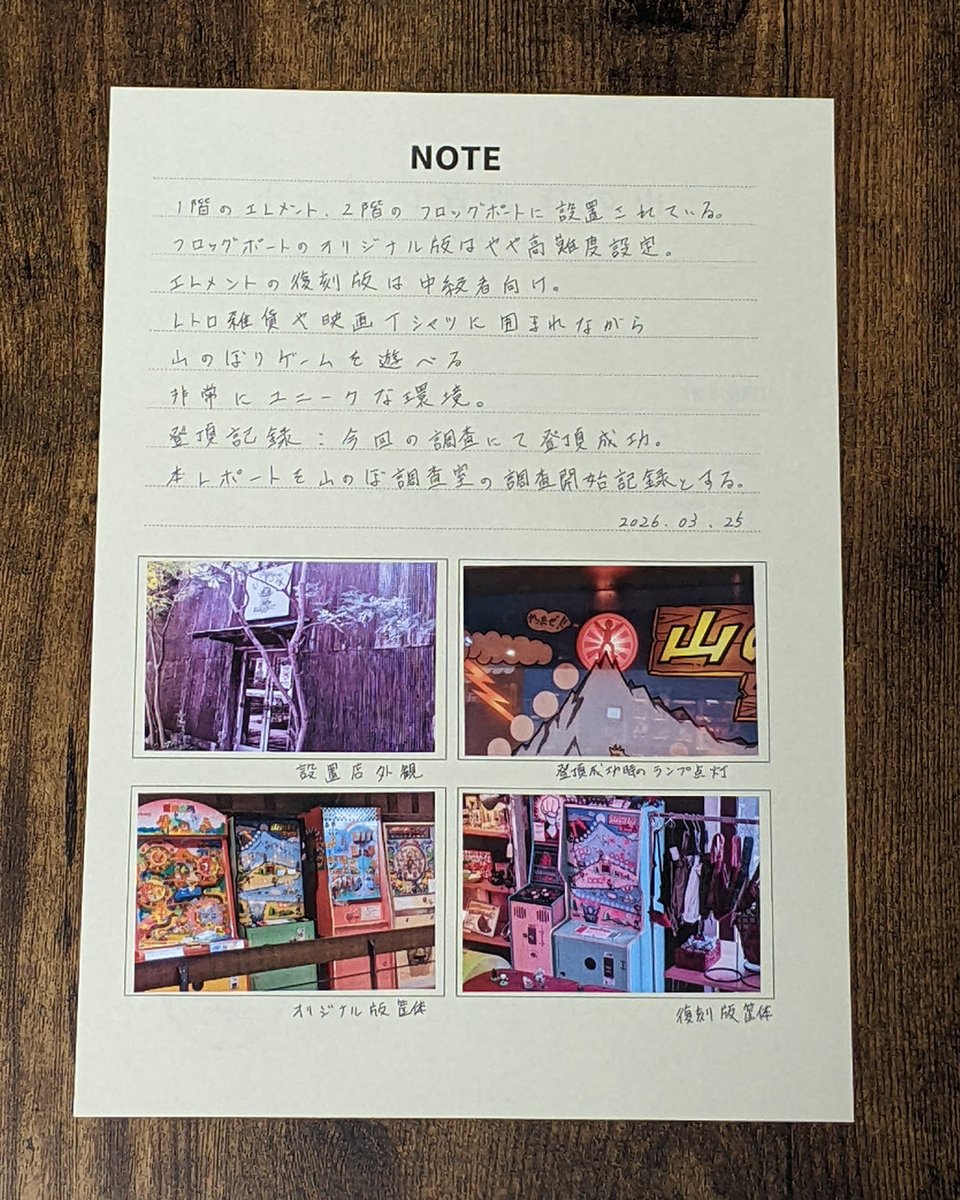 NOTE
1階のエレメント、2階のフロッグポートに設置されている。
フロッグポートのオリジナル版はやや高難度設定。
エレメントの復刻版は中級者向け。
レトロ雑貨や映画Tシャツに囲まれながら
山のぼりゲームを遊べる
非常にユニークな環境。
登頂記録:今回の調査にて登頂成功。
本レポートを山のぼ調査室の調査開始記録とする。
2026.03.25
やったぜ!!
山の
設置店外観
登頂成功時のランプ点灯
オリジナル版筐体
復刻版筐体